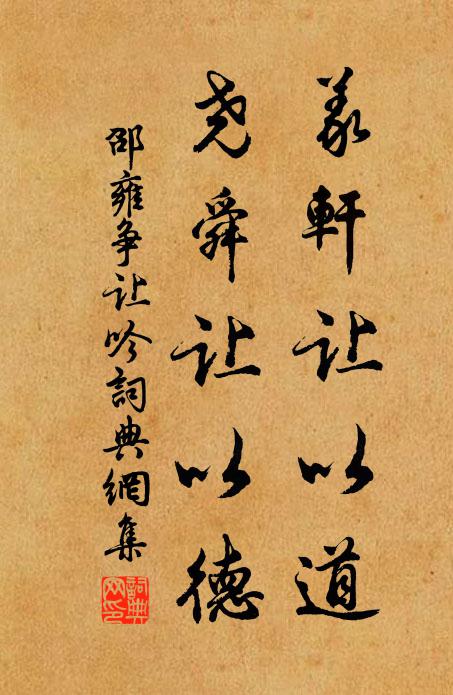 羲軒让以道
尧舜让以德
邵雍争让吟詞典網集
詞典网印